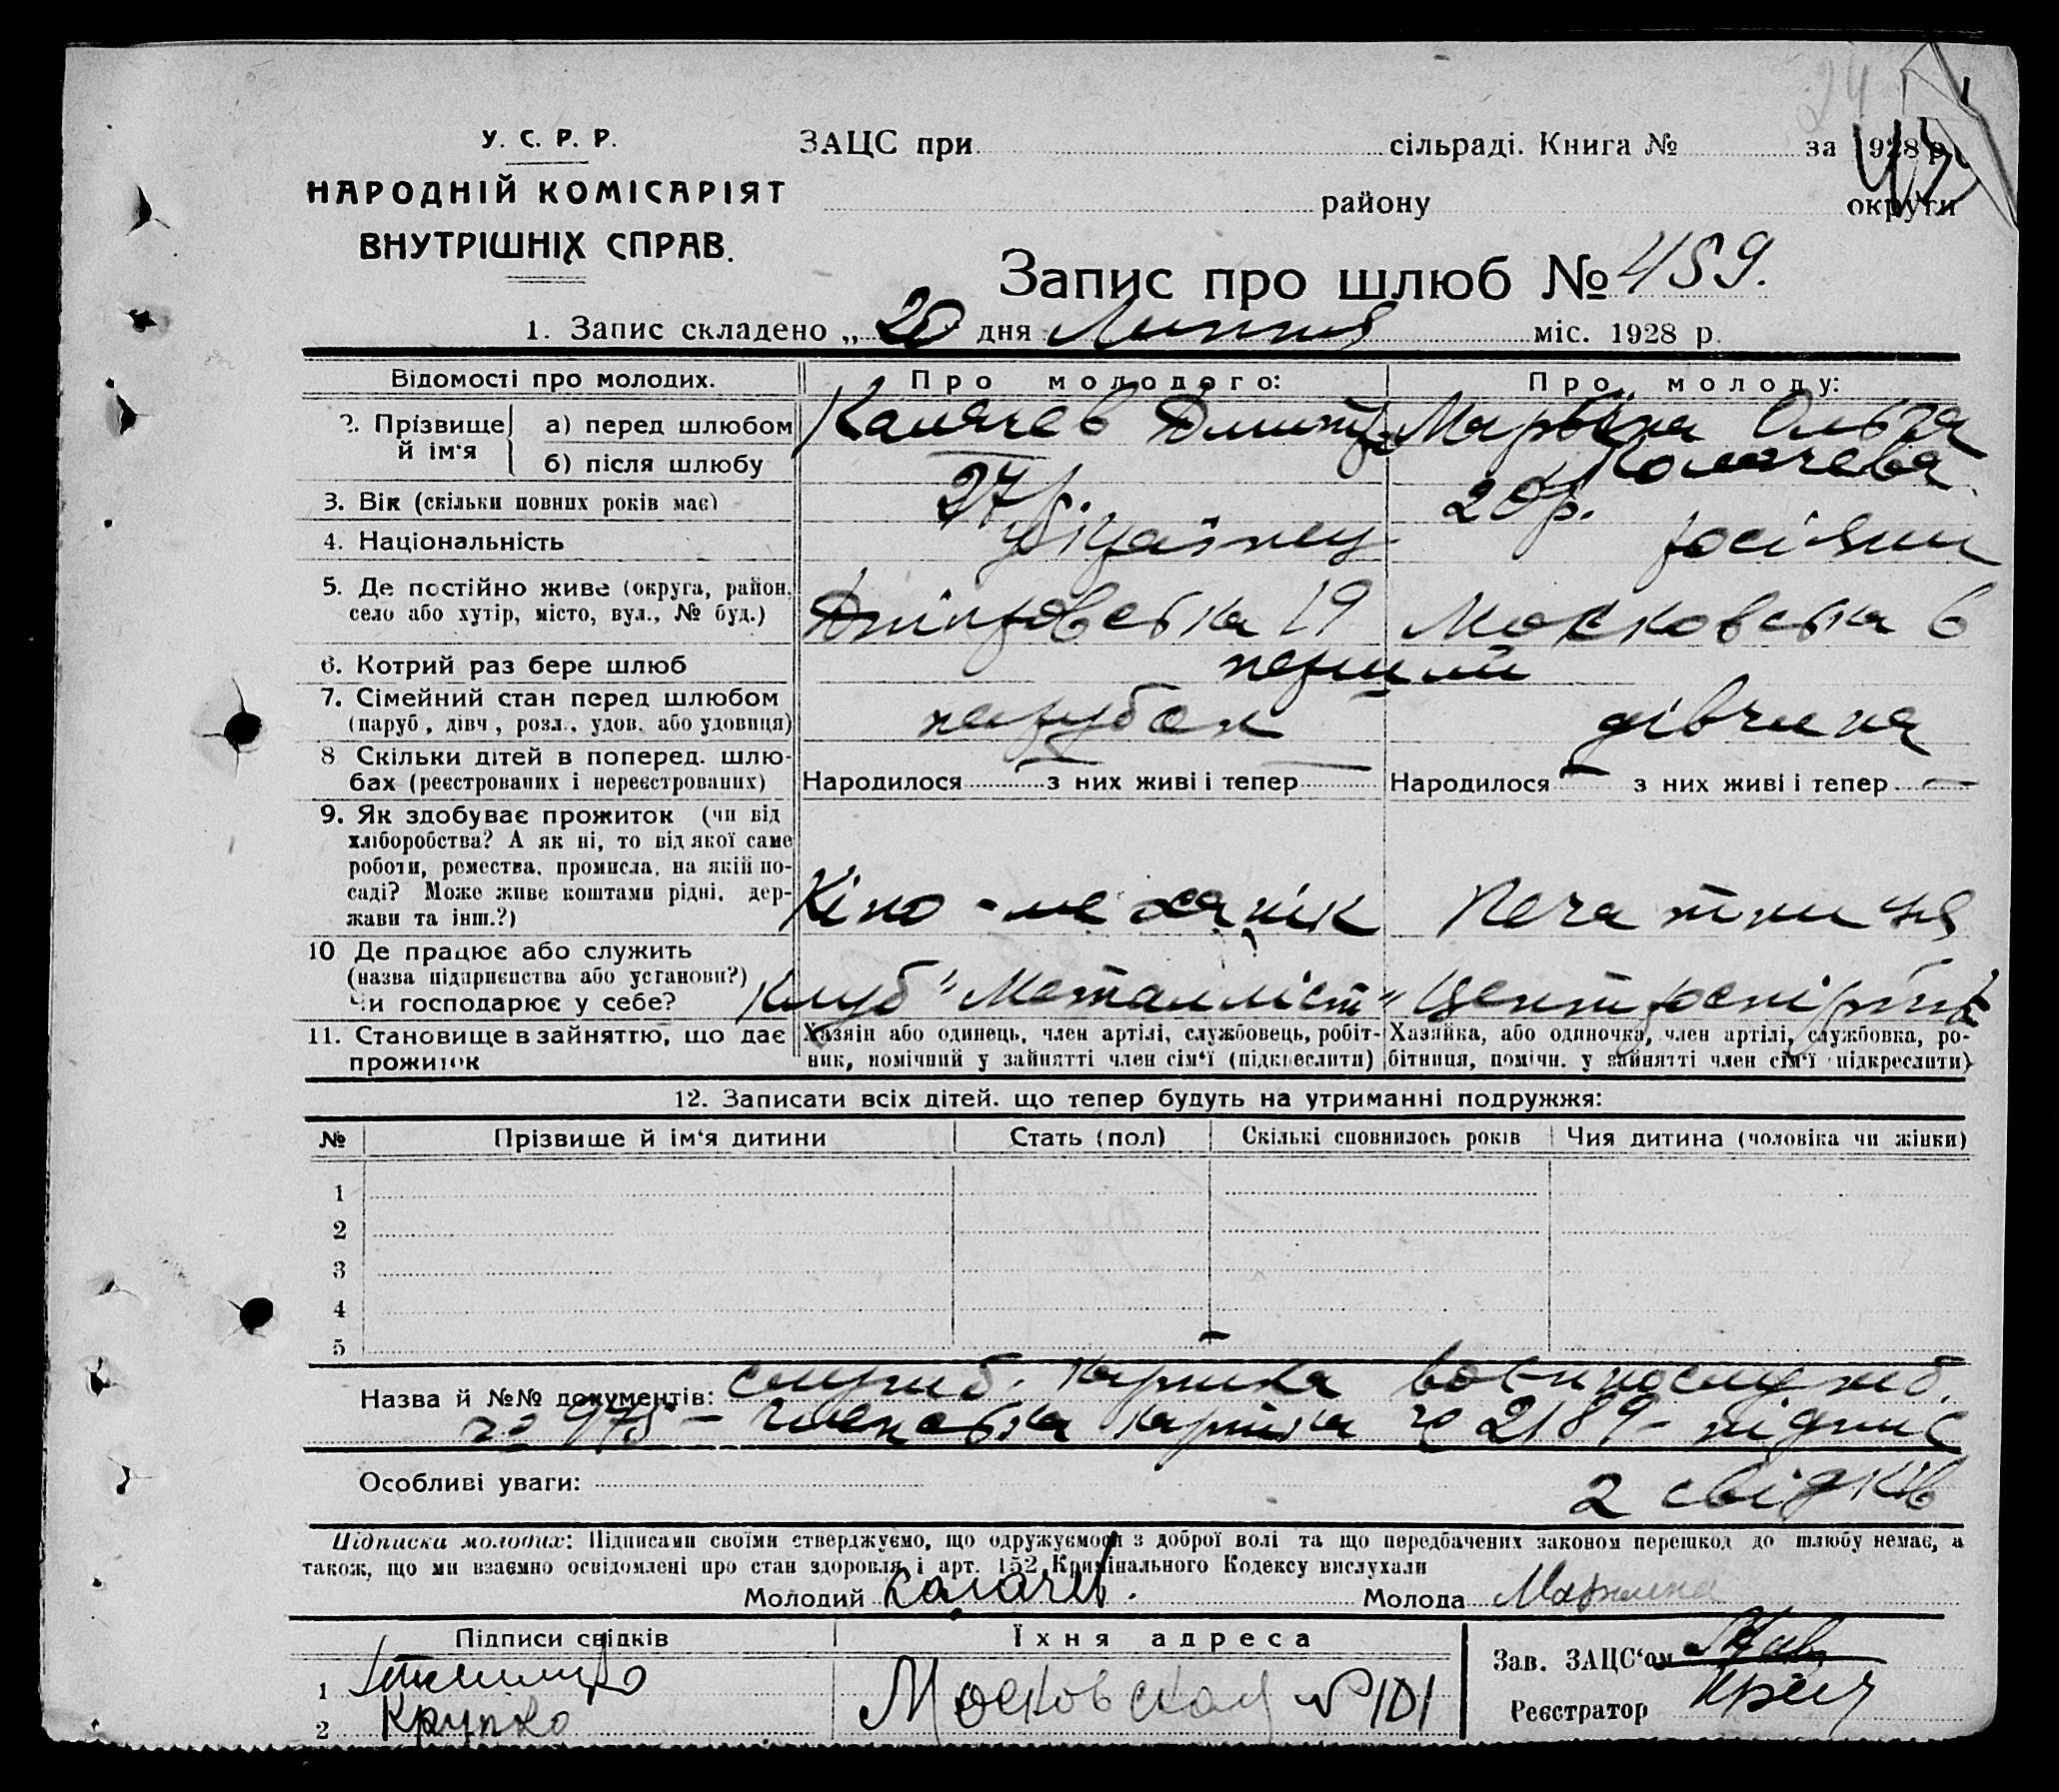 У. С. Р. Р.
НАРОДНІЙ КОМІСАРІЯТ
ВНУТРІШНІХ СПРАВ.
ЗАЦС при сільраді. Книга № за 1928 р.
району округи
Запис про шлюб № 459.
1. Запис складено „ 20 дня Липня міс. 1928 р.
Відомості про молодих. Про молодого: Про молоду:
2. Прізвище й ім‘я
а) перед шлюбом Калачев Дмитр Ольга
б) після шлюбу Калачева
3. Вік (скільки повних років має) 27 р. 20 р.
4. Національність українец росіянки
5. Де постійно живе (округа, район, село або хутір, місто, вул., № буд.) Дніпровська 19 Московська 6
6. Котрий раз бере шлюб перший
7. Сімейний стан перед шлюбом
(паруб., дівч., розл., удов. або удовиця) парубок дівчина
8 Скільки дітей в поперед. шлю-
бах (реєстрованих і нереєстрованих) Народилося з них живі і тепер Народилося — з них живі і тепер —
9. Як здобуває прожиток (чи від
хліборобства? А як ні, то від якої саме
роботи, ремества, промисла, на якій по-
саді? Може живе коштами рідні, дер-
жави та інш.?) Кіно-механік Печатниця
10 Де працює або служить
(назва підприєпства або установи?)
Чи господарює у себе? Клуб "Металліст"
11. Становище в зайняттю, що дає
прожиток
Хазяін або одинець, член артілі, службовець, робіт-
ник, помічний у зайнятті член сім‘ї (підкреслити)
Хазяйка, або одиночка, член артілі, службовка, ро-
бітниця, помічн. у зайнятті член сім‘ї (підкреслити)
12. Записати всіх дітей. що тепер будуть на утриманні подружжя:
№ Прізвище й ім‘я дитини Стать (пол) Скількі сповнилось років Чия дитина (чоловіка чи жінки)
1
2
3
4
5 —
Назва й №№ документів: служб. картка
№ 975 – членська картка № 2189 – підпис
Особливі уваги: 2 свідків
Підписка молодих: Підписами своїми стверджуємо, що одружуємося з доброї волі та що передбачених законом перешкод до шлюбу немає, а
також, що ми взаємно освідомлені про стан здоровля і арт. 152 Кримінального Кодексу вислухали
Молодий Калачев. Молода
Підписи свідків Їхня адреса
Зав. ЗАЦС‘ом
1
Московская №101
2 Крупко
Реєстратор